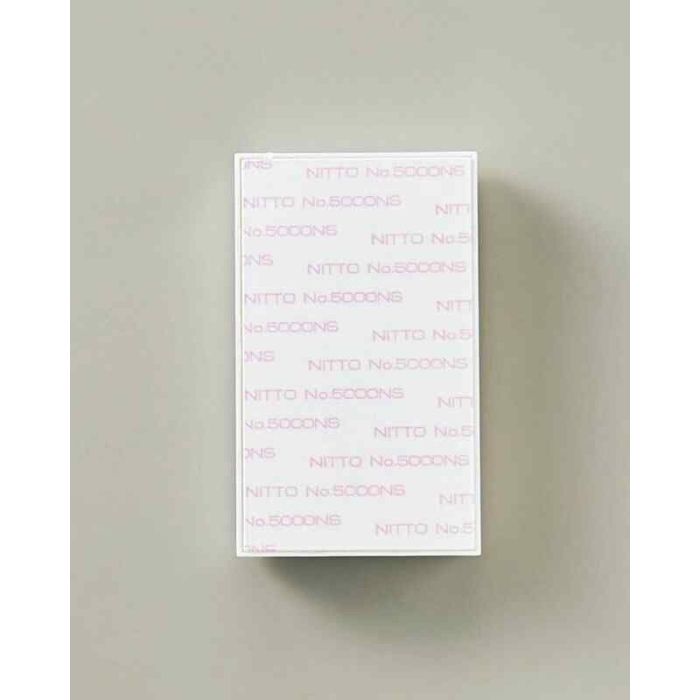 ONS NITTO No.5000NS
NITTO No.5000NS NITT
No.5000NS NITTO No.5
ONS NITTO No.5000NS
NITTO No.5000NS NITT
No.5000NS NITTO No.5
ONS NITTO No.5000NS
NITTO No.5000NS NITT
No.5000NS NITTO No.5
ONS NITTO No.5000NS
NITTO No.5000NS NITT
No.5000NS NITTO No.5
ONS